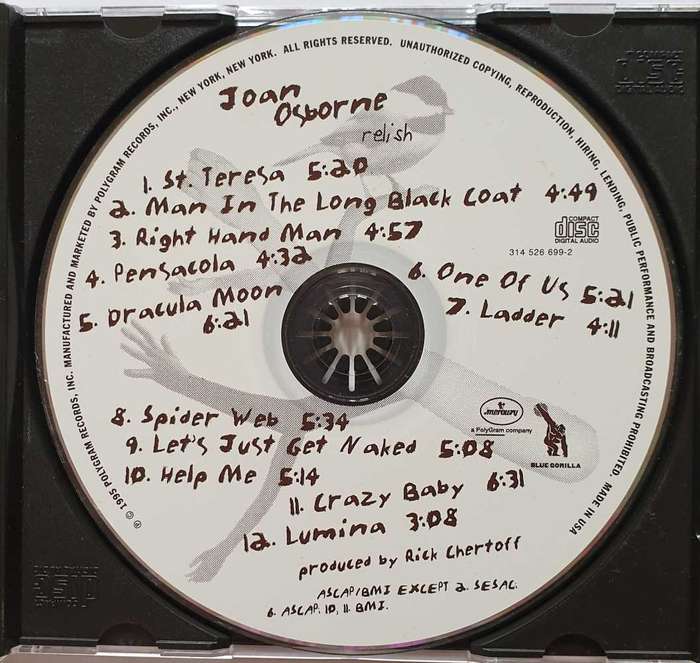 ℗ © 1995 POLYGRAM RECORDS, INC. MANUFACTURED AND MARKETED BY POLYGRAM RECORDS, INC., NEW YORK, NEW YORK. ALL RIGHTS RESERVED. UNAUTHORIZED COPYING, REPRODUCTION, HIRING, LENDING, PUBLIC PERFORMANCE AND BROADCASTING PROHIBITED. MADE IN USA
Joan
Osborne
relish
1. St. Teresa 5:20
2. Man In The Long Black Coat 4:49
3. Right Hand Man 4:57
4. Pensacola 4:32
5. Dracula Moon
6:21
6. One Of Us 5:21
7. Ladder 4:11
COMPACT
disc
DIGITAL AUDIO
314 526 699-2
8. Spider Web 5:34
9. Let's Just Get Naked 5:08
10. Help Me 5:14
11. Crazy Baby 6:31
12. Lumina 3:08
mercury
a PolyGram company
BLUE GORILLA
produced by Rick Chertoff
ASCAP/BMI EXCEPT 2. SESAC.
6. ASCAP. 10, 11. BMI.
COMPACT
disc
DIGITAL AUDIO
COMPACT
disc
DIGITAL AUDIO